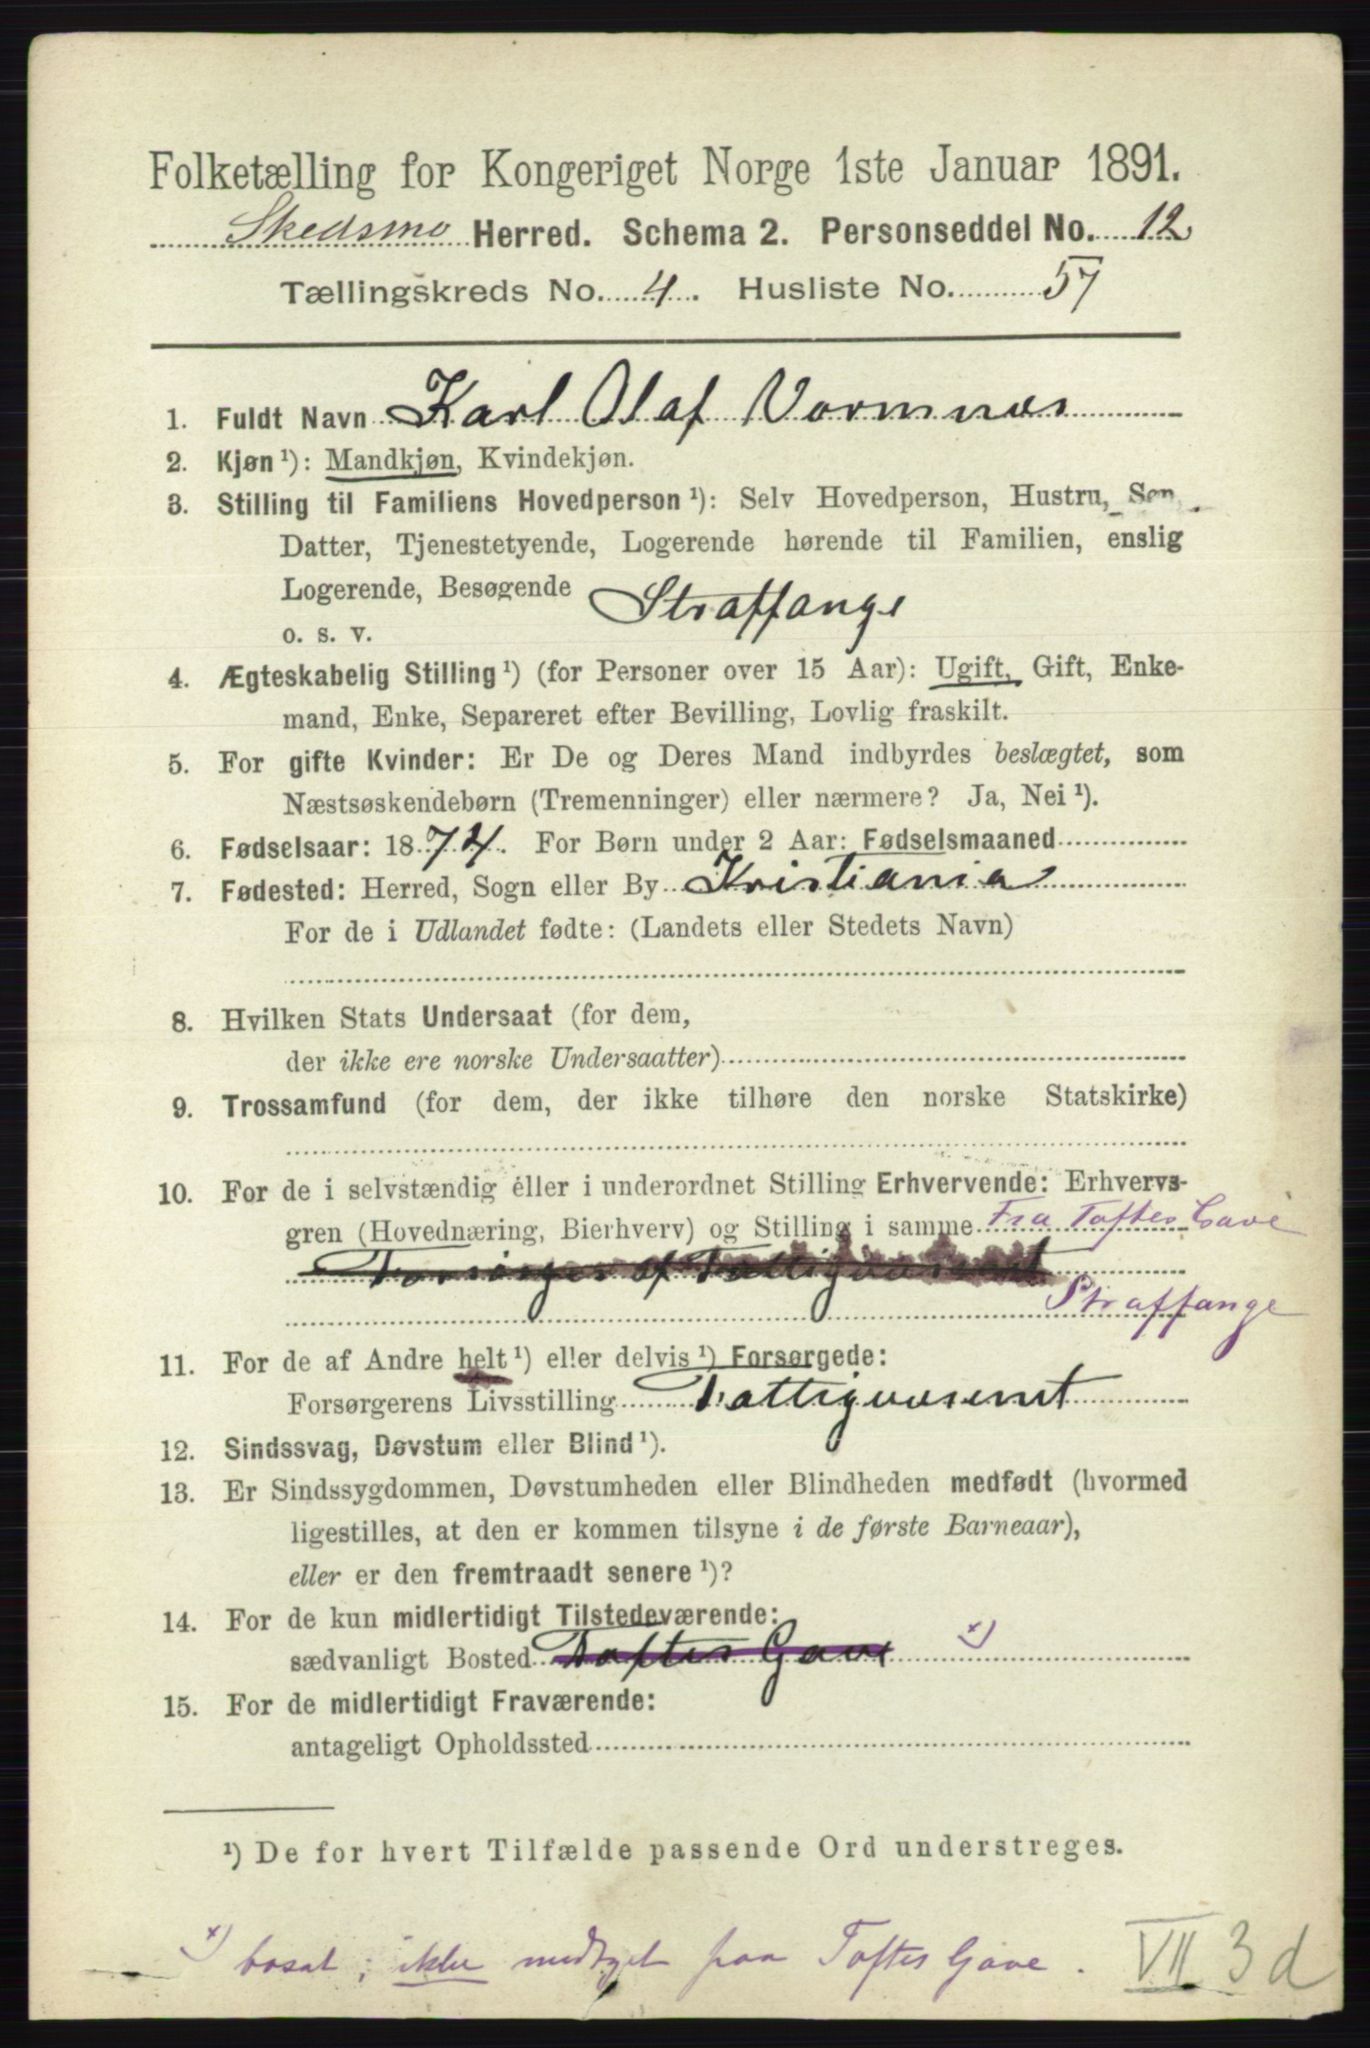 Folketælling for Kongeriget Norge 1ste Januar 1891.
Skedsmo Herred. Schema 2. Personseddel No. 12
Tællingskreds No. 4. Husliste No. 57
1. Fuldt Navn Karl Olaf Vormnæs
2. Kjøn ¹): Mandkjøn, Kvindekjøn.
3. Stilling til Familiens Hovedperson ¹): Selv Hovedperson, Hustru, Søn,
Datter, Tjenestetyende, Logerende hørende til Familien, enslig
Logerende, Besøgende Straffange
o. s. v.
4. Ægteskabelig Stilling ¹) (for Personer over 15 Aar): Ugift, Gift, Enke-
mand, Enke, Separeret efter Bevilling, Lovlig fraskilt.
5. For gifte Kvinder: Er De og Deres Mand indbyrdes beslægtet, som
Næstsøskendebørn (Tremenninger) eller nærmere? Ja, Nei ¹).
6. Fødselsaar: 1874. For Børn under 2 Aar: Fødselsmaaned
7. Fødested: Herred, Sogn eller By Kristiania
For de i Udlandet fødte: (Landets eller Stedets Navn)
8. Hvilken Stats Undersaat (for dem,
der ikke ere norske Undersaatter)
9. Trossamfund (for dem, der ikke tilhøre den norske Statskirke)
10. For de i selvstændig eller i underordnet Stilling Erhvervende: Erhvervs-
gren (Hovednæring, Bierhverv) og Stilling i samme Fra Toftes Gave
Forsørges af Fattigvæsenet
Straffange
11. For de af Andre helt ¹) eller delvis ¹) Forsørgede:
Forsørgerens Livsstilling Fattigvæsenet
12. Sindssvag, Døvstum eller Blind ¹).
13. Er Sindssygdommen, Døvstumheden eller Blindheden medfødt (hvormed
ligestilles, at den er kommen tilsyne i de første Barneaar),
eller er den fremtraadt senere ¹)?
14. For de kun midlertidigt Tilstedeværende:
sædvanligt Bosted Toftes Gave ×)
15. For de midlertidigt Fraværende:
antageligt Opholdssted
¹) De for hvert Tilfælde passende Ord understreges.
×) bosat; ikke medtaget paa Toftes Gave. VII 3 d